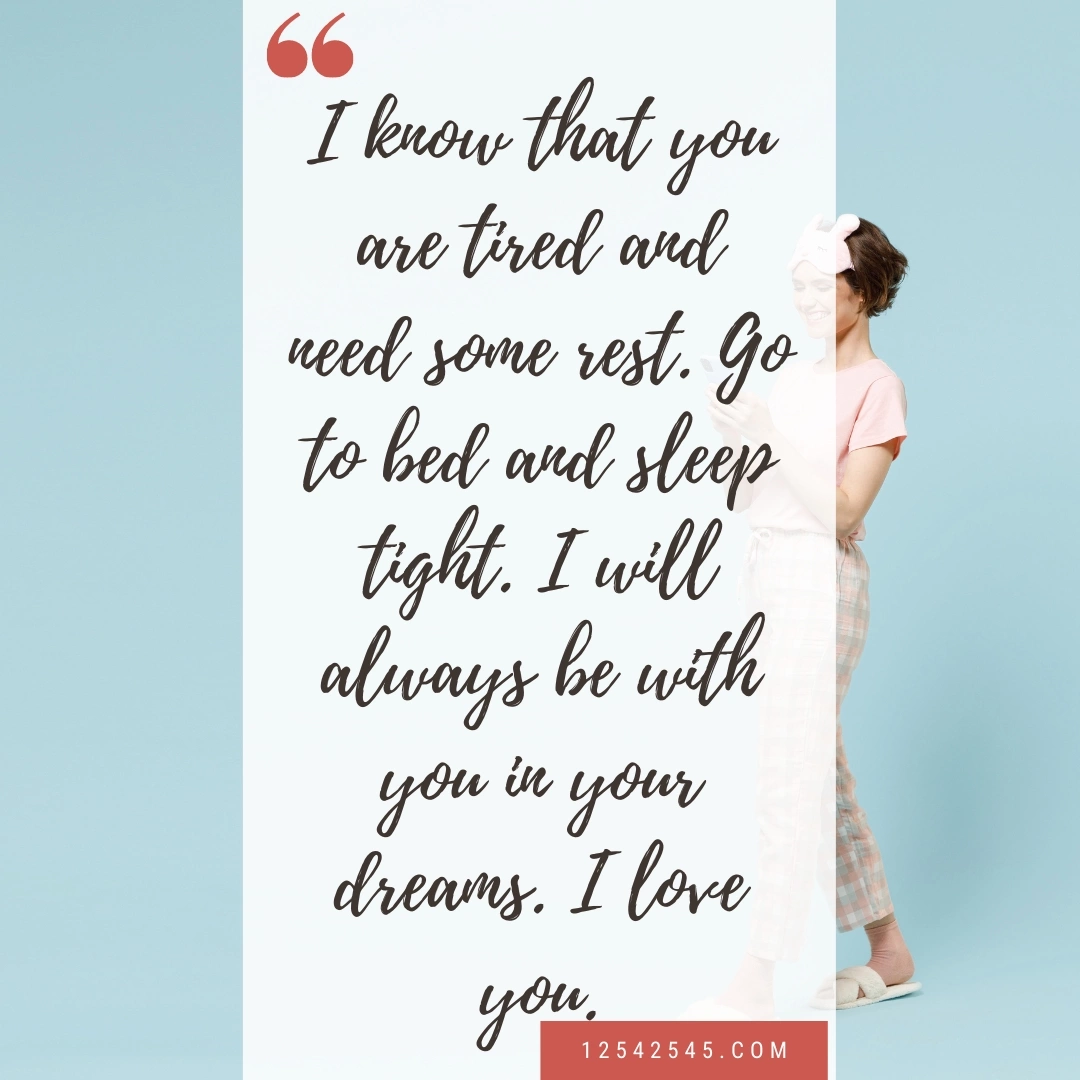 “
I know that you
are tired and
need some rest. Go
to bed and sleep
tight. I will
always be with
you in your
dreams. I love
you.
12542545.COM